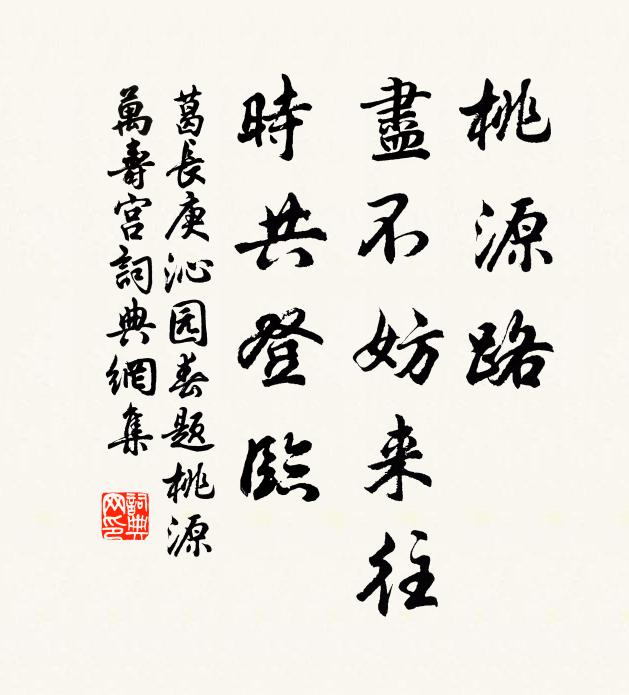 桃源路
盡不妨来往
時共登臨
葛長庚沁园春题桃源
萬壽宫詞典網集
詞典网印